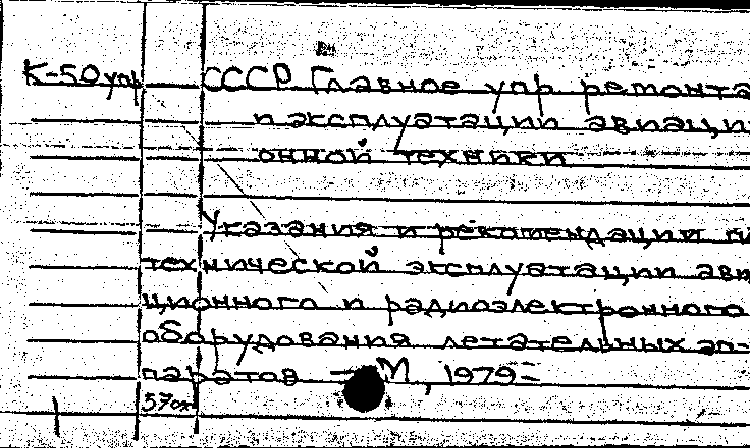 К-50 упр СССР Главное упр ремонта
и эксплуатации авиаци
онной техники
Указания и рекомендации п
технической эксплуатации ави
ционного и радиоэлектронного
оборудования летательных ап-
паратов — М, 1979-